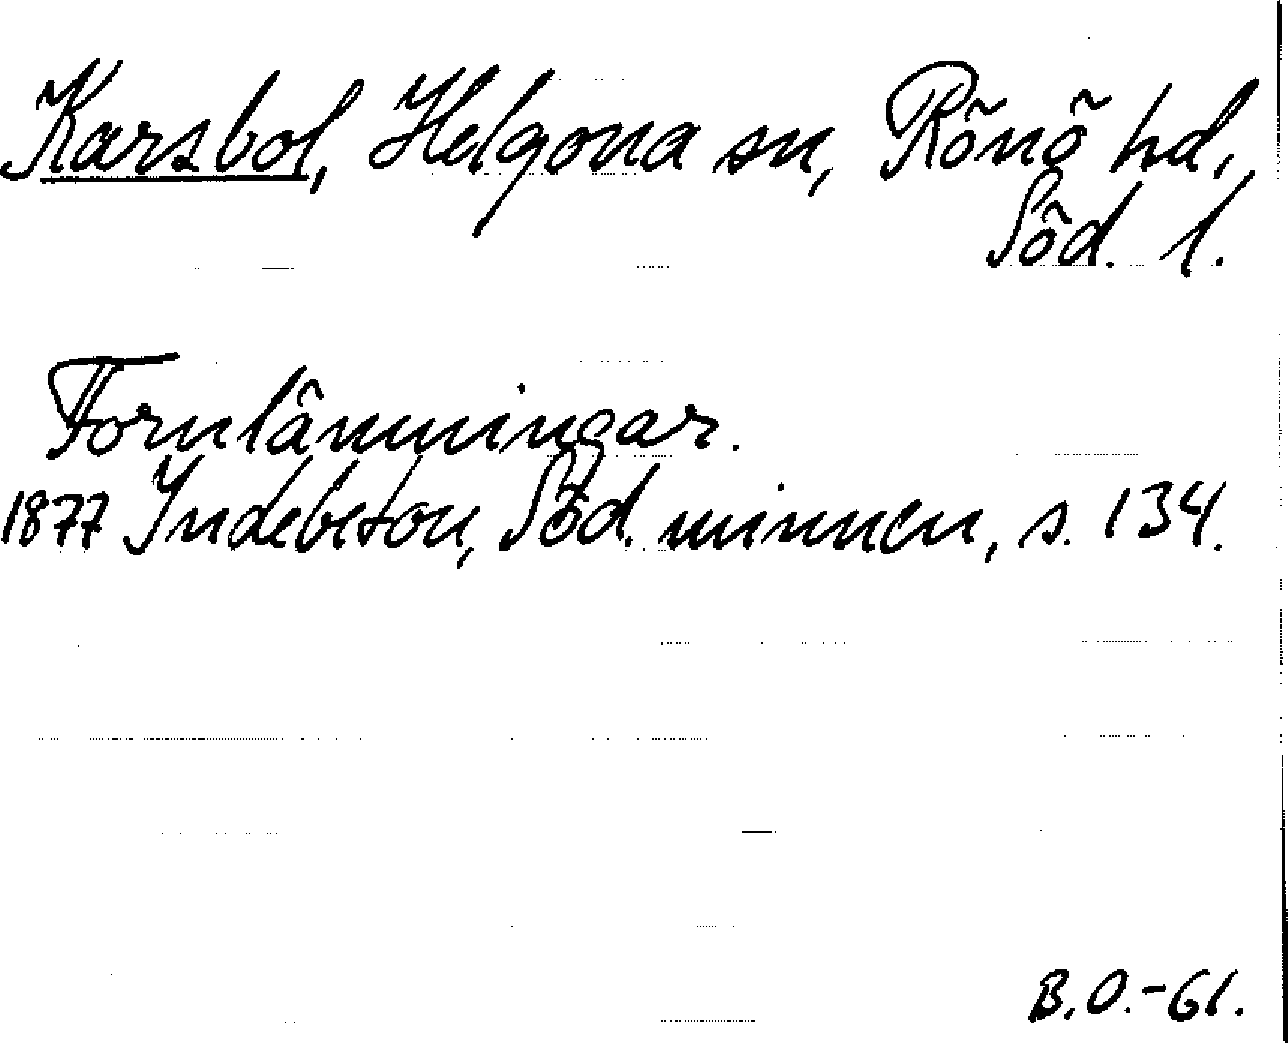 Karsbol, Helgona sn, Rönö hd,
Söd. l.
Fornlämningar.
1877 Indebetou, Söd. minnen, s. 134.
B.O.-61.